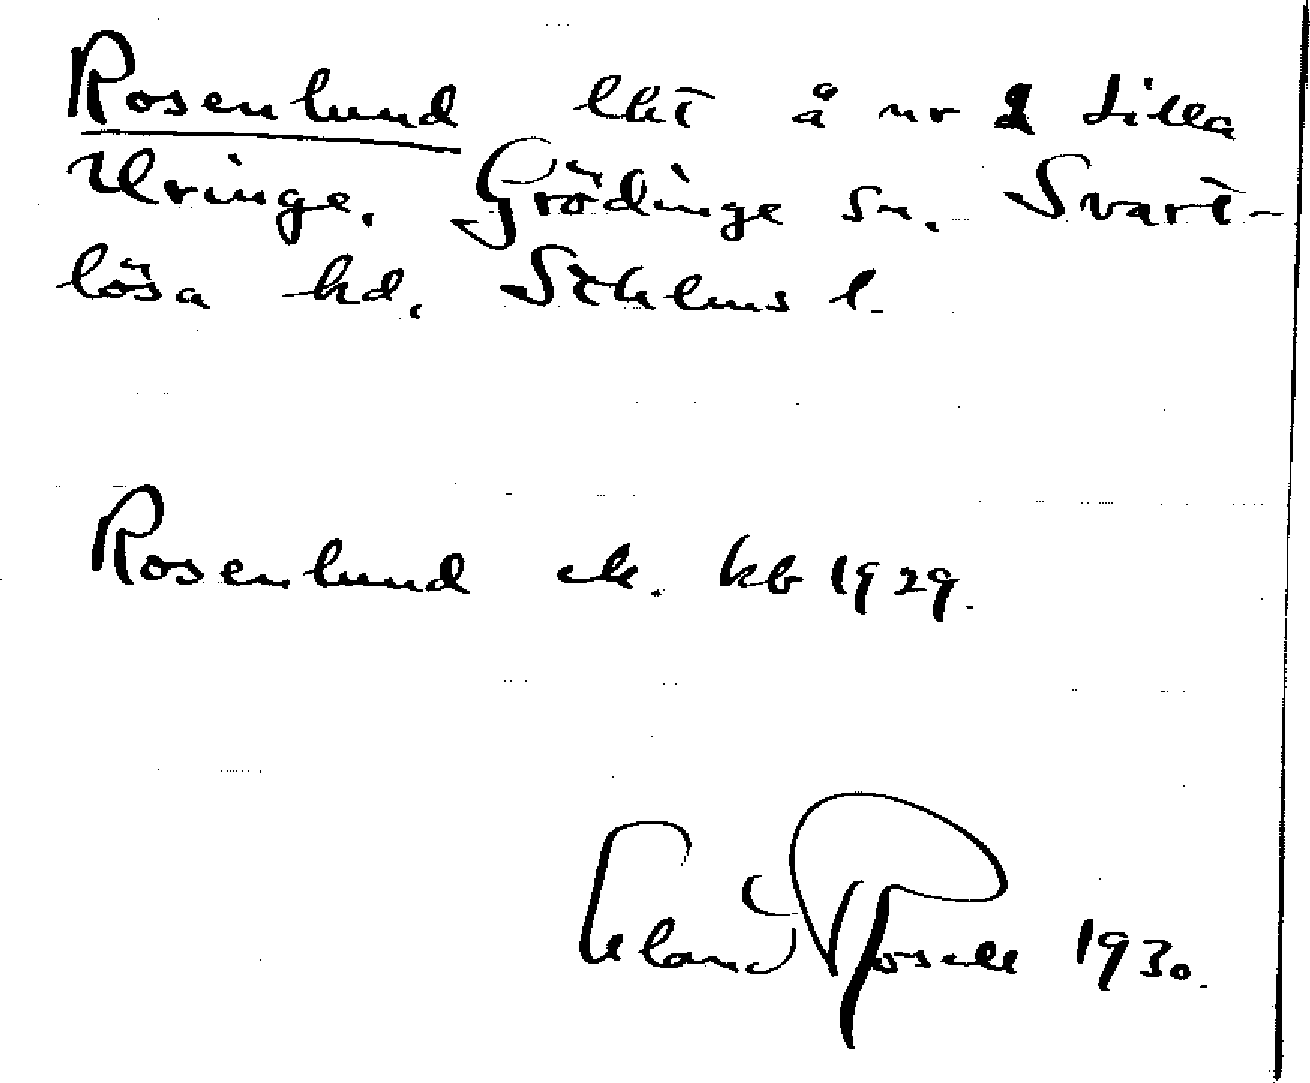 Rosenlund lht å nr 1 Lilla
Uringe. Grödinge sn. Svart-
lösa hd. Sthlms l.
Rosenlund ek. kb 1929.
Erland Rosell 1930.